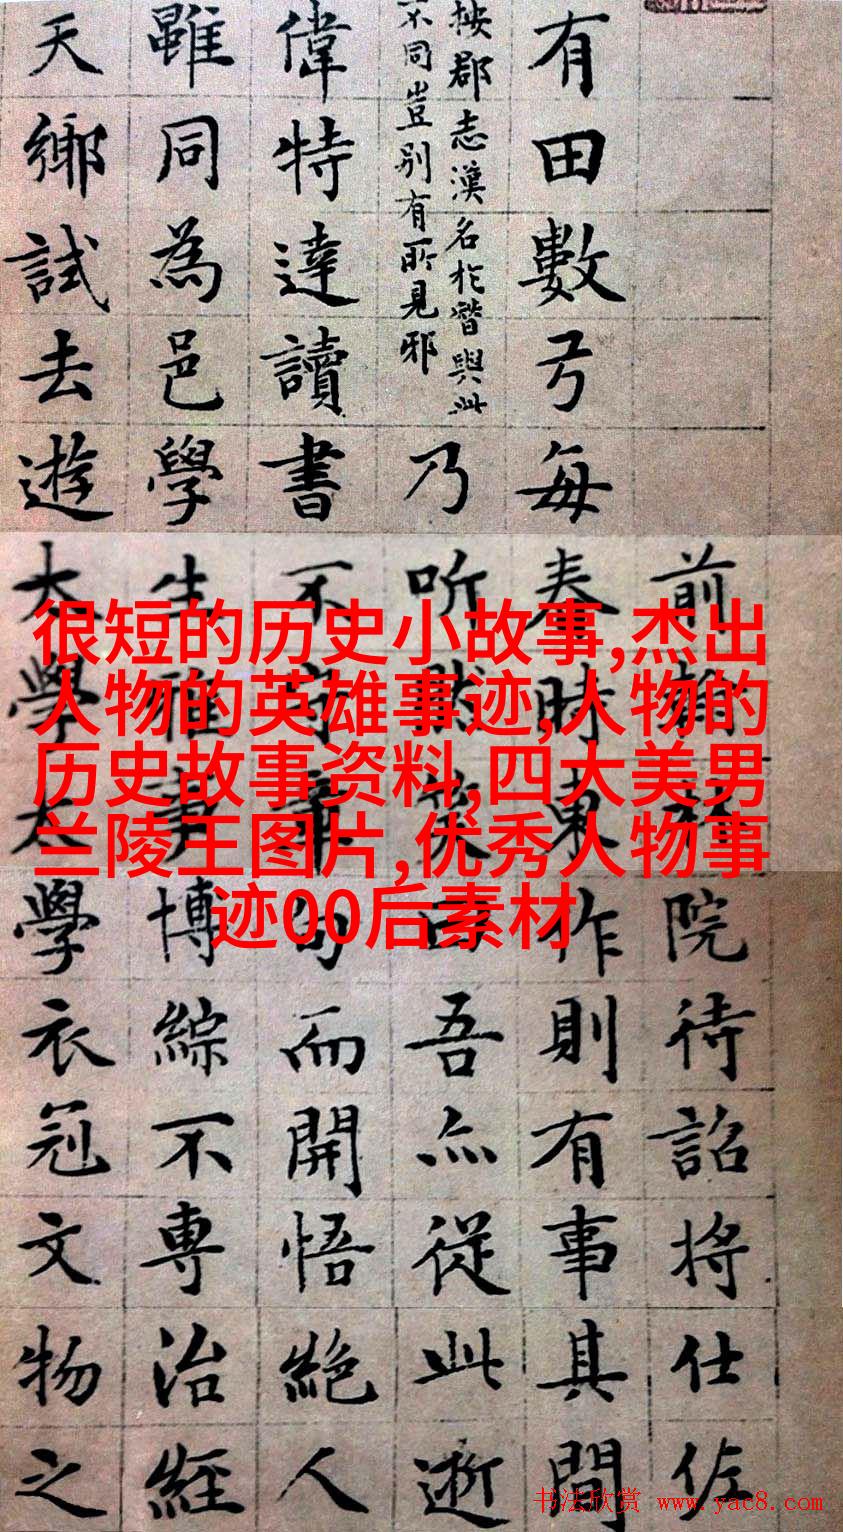 前翰林院待詔將仕佐
有田數弓每春時東作則有事其間
按郡志漢名於晉與此
不同豈别有所見邪
乃听然笑曰吾亦從此逝
偉特達讀書不守章句而開悟絕人
雖同為邑學生雅事博綜不專治經
天鄉試去遊大學太學衣冠文物之
很短的历史小故事,杰出
人物的英雄事迹,人物的
历史故事资料,四大美男
兰陵王图片,优秀人物事
迹00后素材
书法欣赏 www.yac8.com